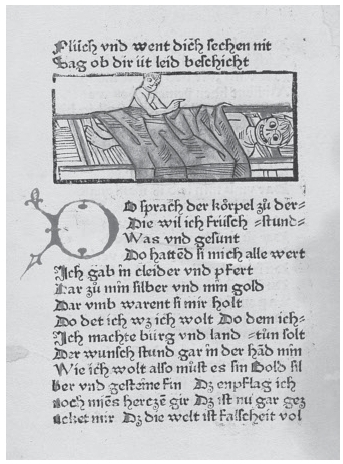 Flüch vnd went dich sechen nit
Sag ob dir üt leid beschicht
DO sprach der körpel zů der⸗
Die wil ich früsch ⸗stund⸗
Was vnd gesunt
Do hatted si mich alle wert
Ich gab in cleider vnd pfert
Dar zů min silber vnd min gold
Dar vmb warent si mir holt
Do det ich wz ich wolt Do dem ich⸗
Ich machte burg vnd land ⸗tůn solt
Der wunsch stund gar in der hād min
Wie ich wolt also můst es sin Gold sil
ber vnd gesteine fin Dz enpflag ich
noch mīes herczē gir Dz ist nu gar gez
ucket mir Dz die welt ist falscheit vol